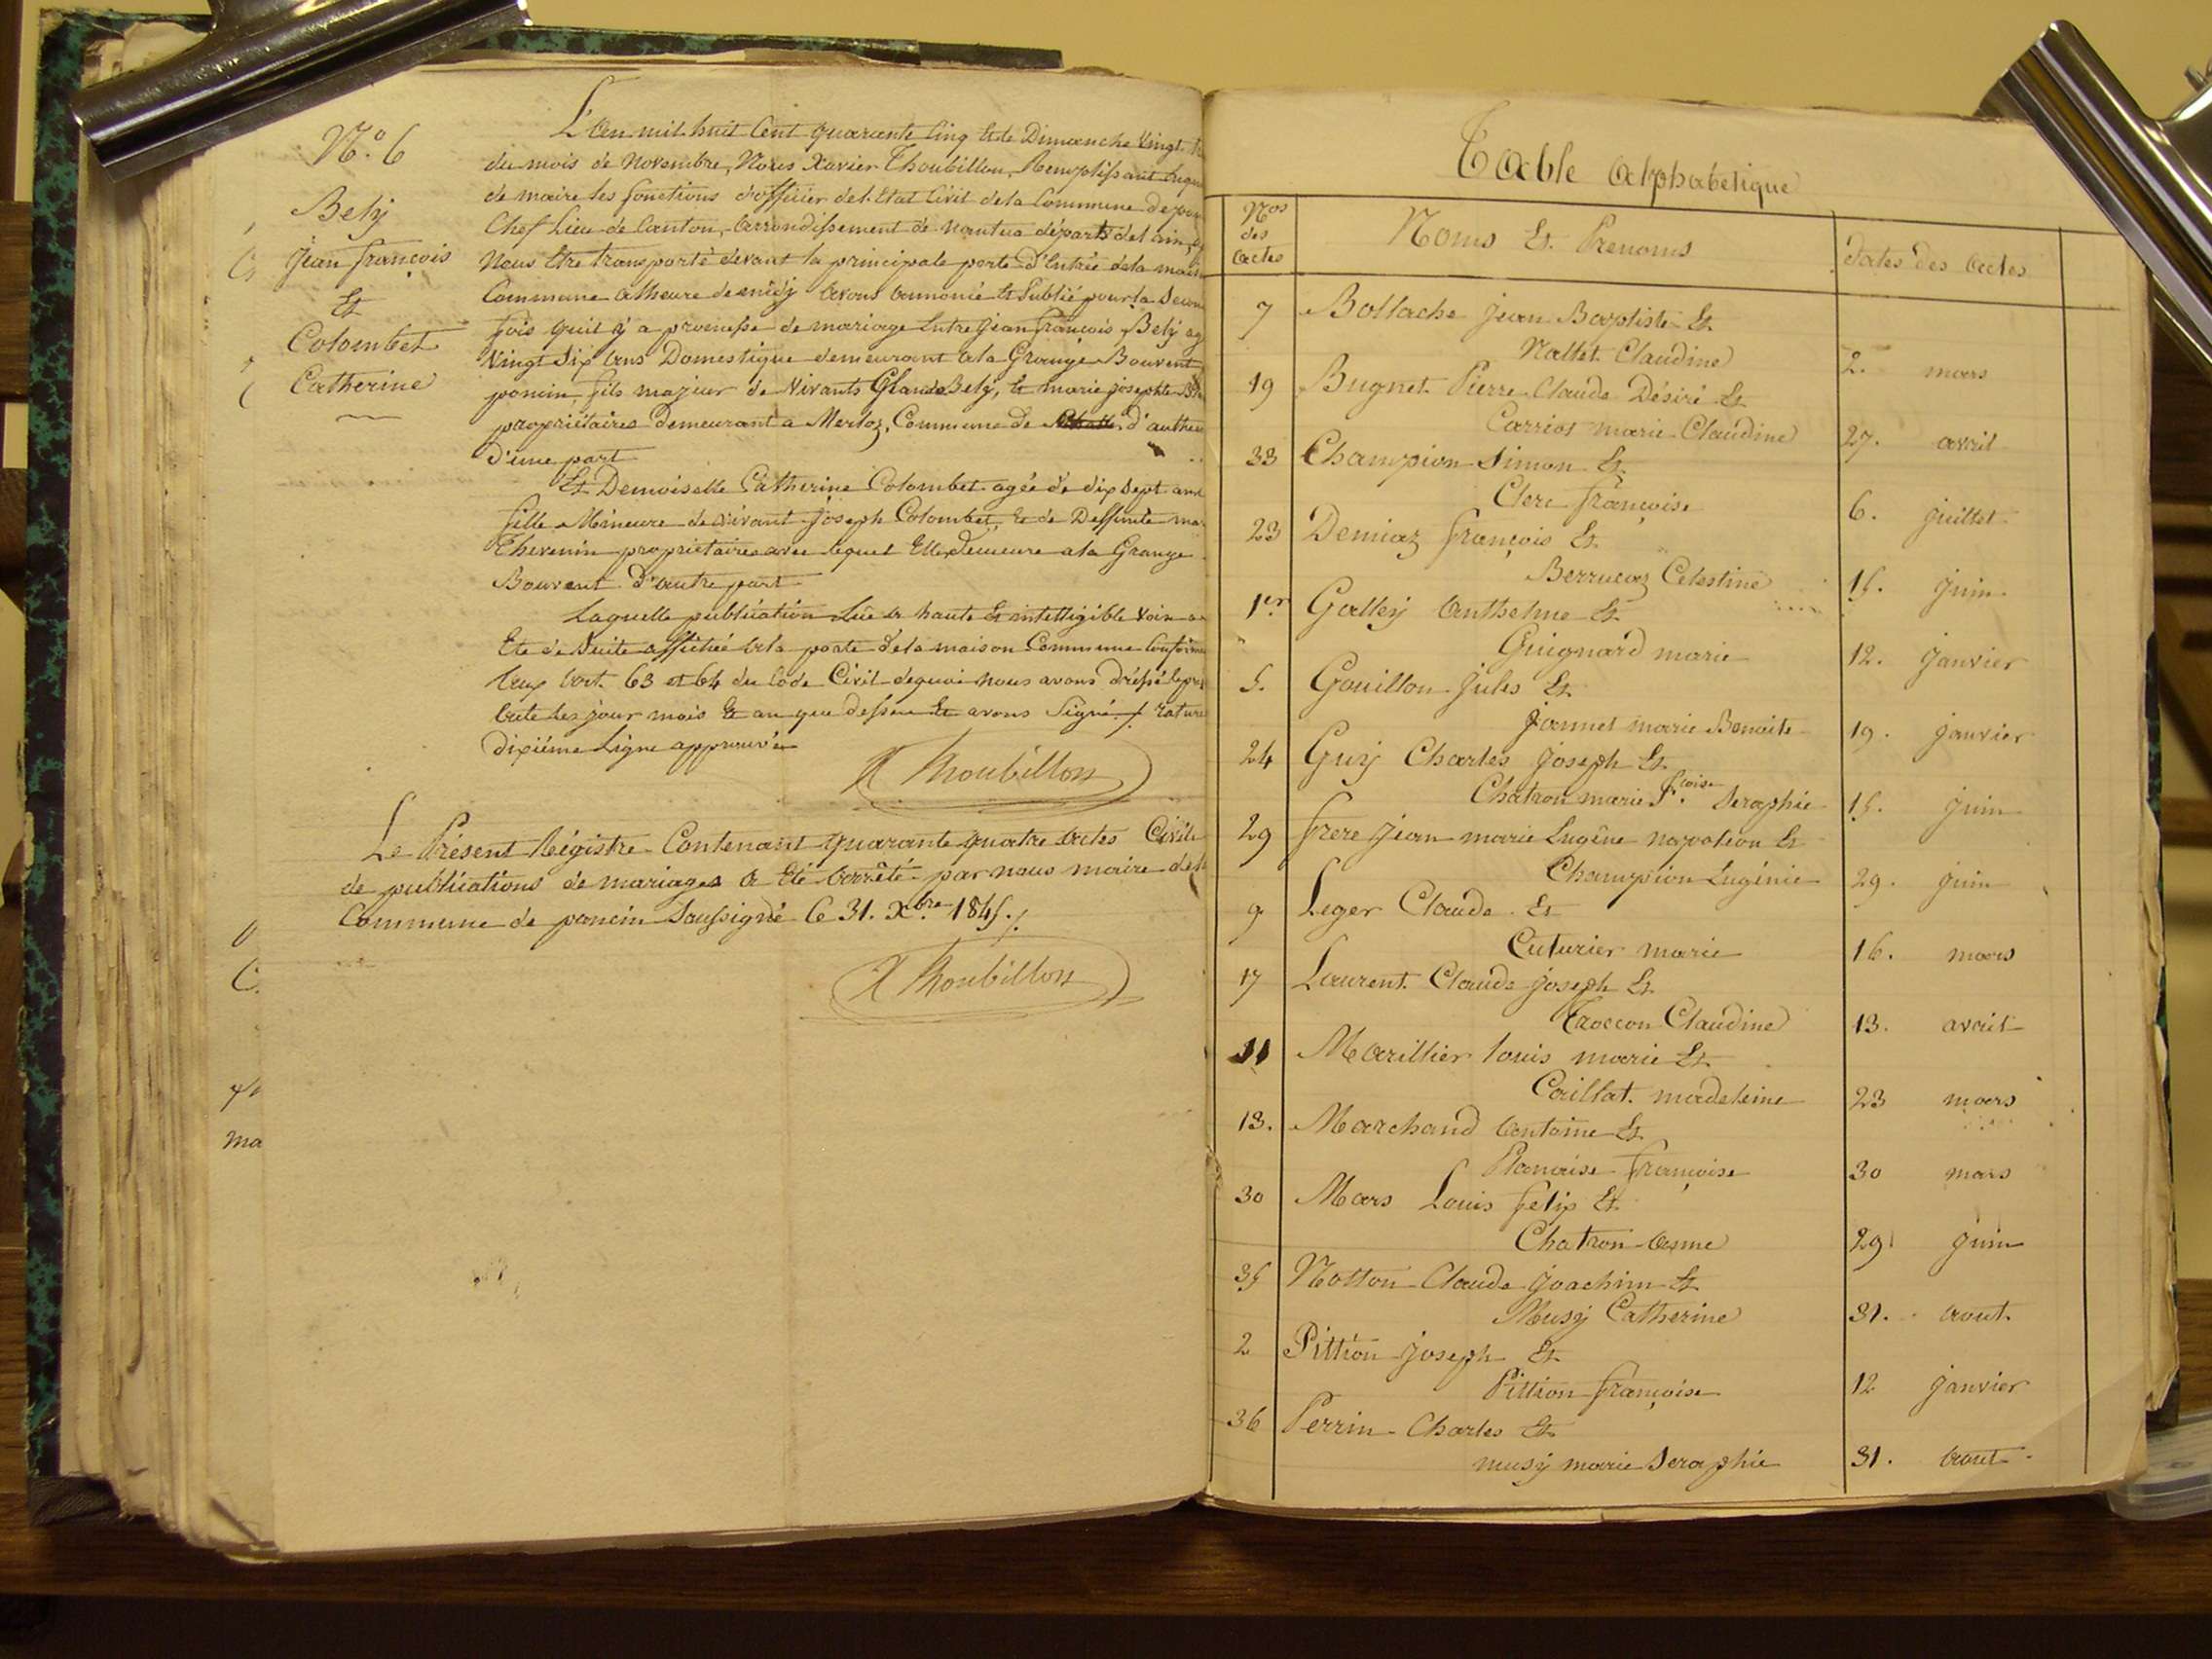 N.o 6
Bely
jean françois
Et
Colombet
Catherine
L'an mil huit Cent quarante Cinq Et le Dimanche Vingt
du mois de Novembre, Nous Xavier Thoubillon, Remplissant
de maire les fonctions d'officier de l'Etat Civil de la Commune de
Chef Lieu de Canton, arrondissement de nantua départt de l'ain,
Nous Etre transporté devant la principale porte d'Entrée de la
Commune a l'heure de midy avons annoncé Et Publié pour la
fois qu'il y a promesse de mariage Entre jean françois Bely
Vingt Six ans Domestique demeurant a la Grange Bouvent
poncin, fils majeur de Vivants Glaude Bely, Et marie josephte
propriétaires Demeurant a Merloz, Commune de
d'une part
Et Demoiselle Catherine Colombet agée de dix Sept ans
fille Mineure de vivant joseph Colombet, Et de Deffunte
Thevenin propriétaires avec lequel Elle Demeure a la Grange
Bouvent D'autre part
Laquelle publication Lue a haute Et intelligible Voix
Eté de Suite affichée a la porte de la maison Commune
aux art. 63 et 64 du Code Civil de quoi nous avons dréssé
acte les jour mois Et an que dessus Et avons Signé ./.
dixiéme Ligne approuvée
X Thoubillon
Le Présent Régistre Contenant quarante quatre actes Civils
de publications de mariages a Eté arrêté par nous maire de la
Commune de poncin Soussigné le 31. Xbre 1845 ./.
X Thoubillon
ma
Table alphabetique
Nos des actes Noms Et Prenoms dates des actes
7 Bollache jean Baptiste Et
Nallet Claudine 2. mars
19 Bugnet Pierre Claude Désiré Et
Carrios marie Claudine 27. avril
33 Champion Simon Et
Clerc françoise 6. juillet
23 Demiaz françois Et
Berrucaz Celestine 15. juin
1er Galley Anthelme Et
Guignard marie 12. janvier
5. Gouillon jules Et
jannet marie Benoite 19. janvier
24 Guy Charles joseph Et
Chatron marie f.coise Seraphie 15. juin
29 frere jean marie Eugêne napoléon Et
Champion Eugénie 29. juin
9 Leger Claude Et
Cuturier marie 16. mars
17 Laurent Claude joseph Et
Troccon Claudine 13. avril
11 Marillier louis marie Et
Caillat madeleine 23 mars
13. Marchand antoine Et
Planaise françoise 30 mars
30 Mars Louis felix Et
Chatron 29 juin
35 Notton Claude joachim Et
Musy Catherine 31. aout
2 Pittion joseph Et
Pittion françoise 12 janvier
36 Perrin Charles Et
musy marie Seraphie 31. aout